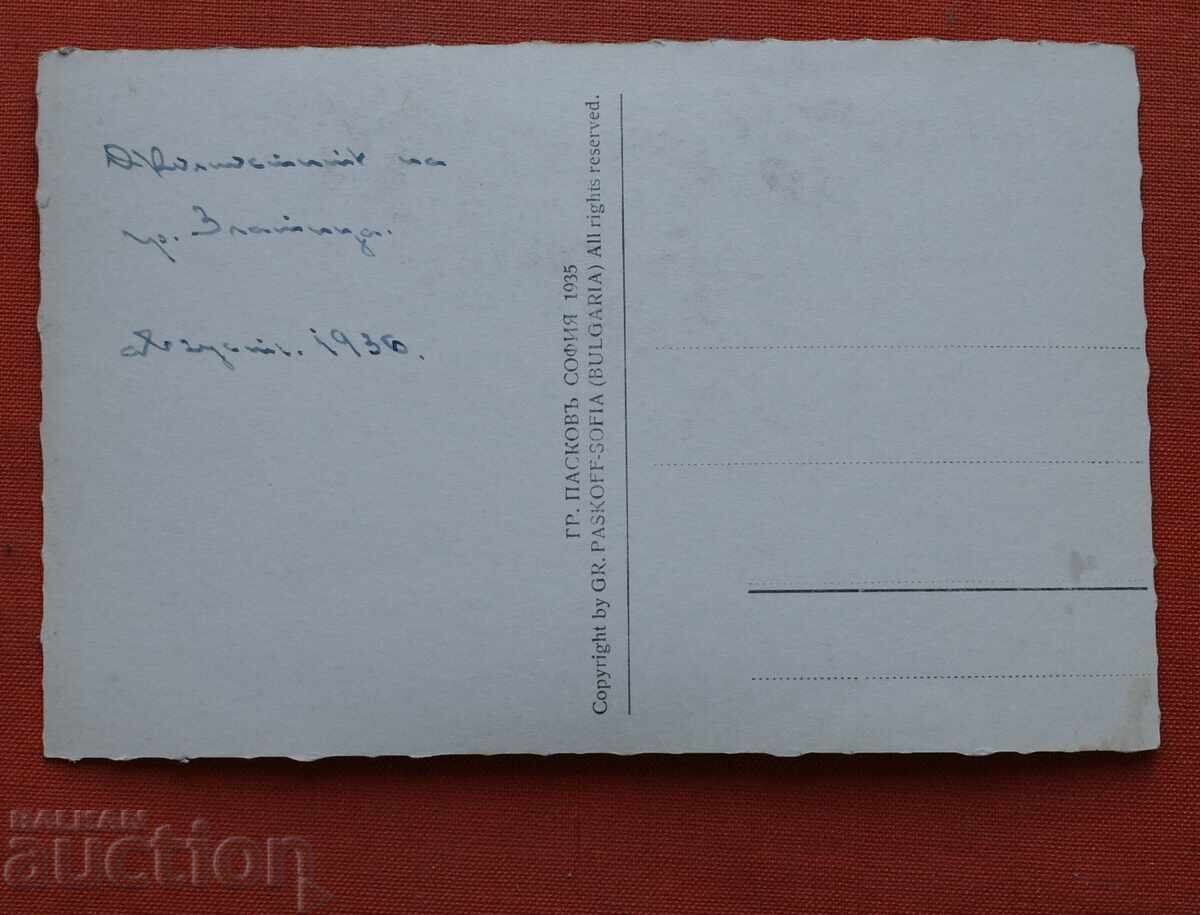 на
гр. Златица.
Августъ. 1936.
ГР. ПАСКОВЪ СОФИЯ 1935
Copyright by GR. PASKOFF-SOFIA (BULGARIA) All rights reserved.
BALKAN
auction